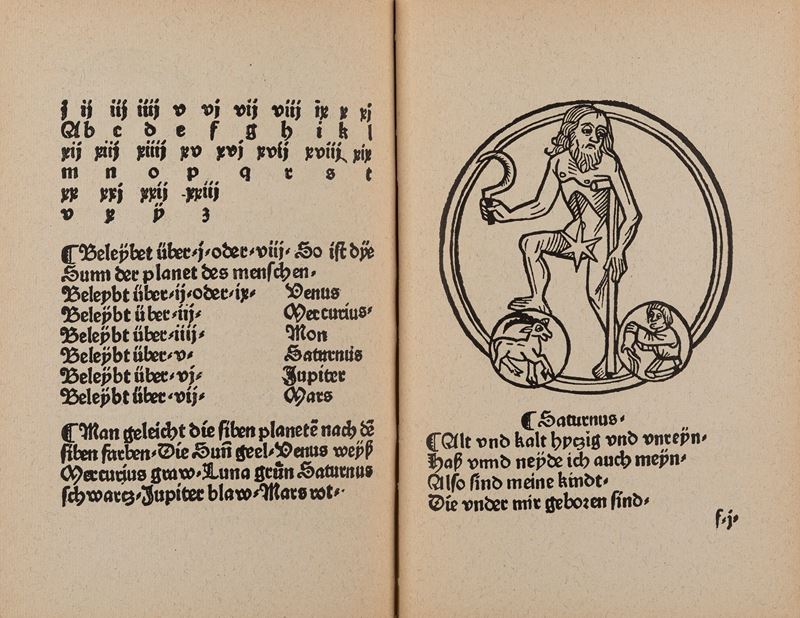 j ij iij iiij v vj vij viij ix x xj
A b c d e f g h i k l
xij xiij xiiij xv xvj xvij xviij xix
m n o p q r s t
xx xxj xxij xxiij
v x ÿ z
¶ Beleÿbet über·j·oder·viij· So ist dÿe
Sunn der planet des menschen·
Beleÿbt über·ij·oder·ix· Venus
Beleÿbt über·iij· Mercurius·
Beleÿbt über·iiij· Mon
Beleÿbt über·v· Saturnus
Beleÿbt über·vj· Jupiter
Beleÿbt über·vij· Mars
¶ Man geleicht die siben planetē nach dē
siben farben·Die Suñ geel·Venus weÿß
Mercurius graw·Luna grün Saturnus
schwartz·Jupiter blaw·Mars rot·
¶ Saturnus·
¶ Alt vnd kalt hytzig vnd vnreÿn·
Haß vnnd neyde ich auch meÿn·
Also sind meine kindt·
Die vnder mir geboren sind·
f·j·